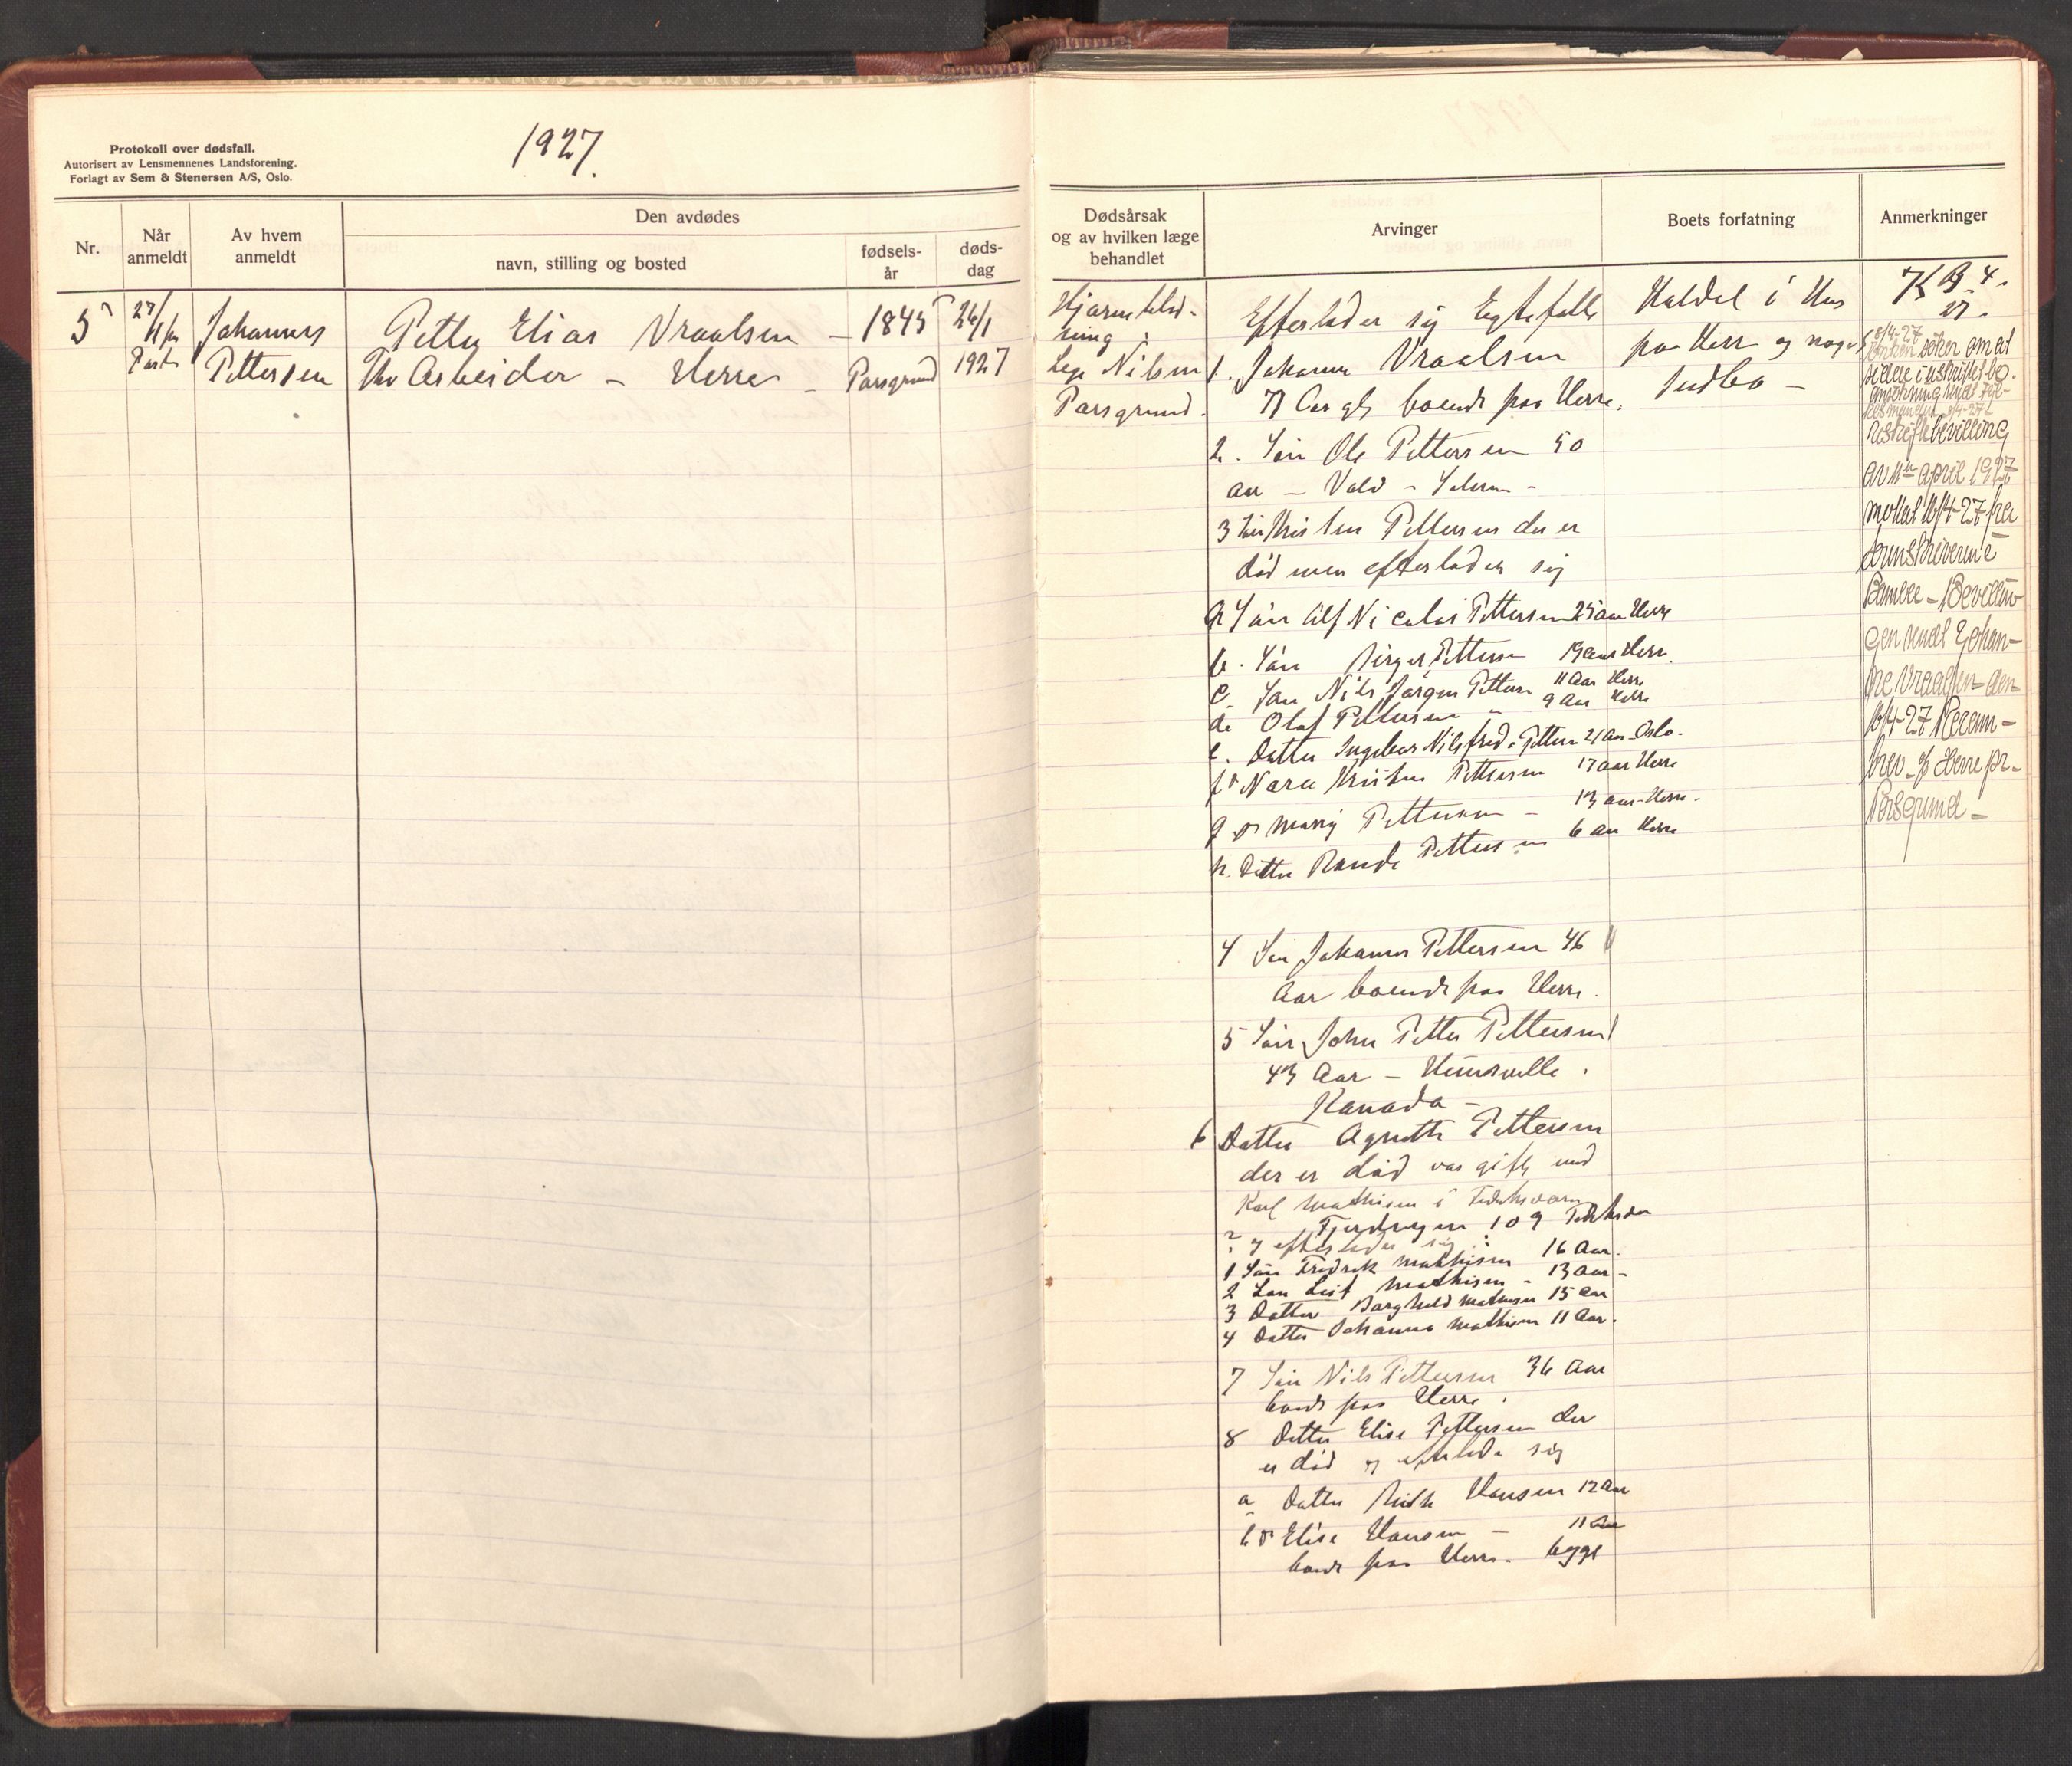 Protokoll over dødsfall.
Autorisert av Lensmennenes Landsforening.
Forlagt av Sem & Stenersen A/S, Oslo.
1927.
Nr.
Når anmeldt
Av hvem anmeldt
Den avdødes
navn, stilling og bosted
fødsels-år
døds-dag
5
27/1
Johannes
Pettersen
Petter Elias Vraalsen –
Arbeider – Herre –
1845
Porsgrund
26/1
1927
Dødsårsak
og av hvilken læge
behandlet
Arvinger
Boets forfatning
Anmerkninger
Hjerneblød-
ning
Lege Nilsen
Porsgrund.
Efterlader sig Egtefelle
1. Johanne Vraalsen
77 Aar gl boende paa Herre.
2. Søn Ole Pettersen 50
Aar – Vold –
3 Søn Kristen Pettersen der er
død men efterlader sig
a Søn Alf Nicolai Pettersen 25 aar Herre
b. Søn Birger Pettersen 19 aar Herre
c. Søn Nils Jørgen Pettersen 11 Aar Herre
d. Olaf Pettersen 9 Aar Herre
e. Datter Ingebor Pettersen 21 Aar Oslo.
f. Nora Kristine Pettersen 17 aar Herre
g. Mary Pettersen – 13 aar Herre.
h. Datter Pettersen 6 aar Herre
4 Søn Johannes Pettersen 46
Aar boende paa Herre.
5 Søn John Petter Pettersen
43 Aar –
Kanada –
6 Datter Agnethe Pettersen
der er død var gift med
Karl Mathisen i
109
og efterlader sig:
1 Søn Fredrik Mathisen 16 Aar.
2 Søn Leif Mathisen – 13 Aar –
3 Datter Borghild Mathisen 15 Aar
4 Datter Johanne Mathisen 11 Aar.
7 Søn Nils Pettersen 36 Aar
boende paa Herre.
8 Datter Elise Pettersen der
er død og efterlader sig
a Datter Ruth Hansen 12 Aar
b Elise Hansen – 11 Aar
boende paa Herre. bygt
Halvdel i Hus
paa Herre og noget
Indbo –
8/4-27
Enken søker om at
sidde i uskiftet bo.
Uskiftebevilling
av 11te april 1927
motat 16/4-27 fra
sorenskriveren i
Bamble – Bevillin-
gen sendt Johan-
ne Vraalsen den
16/4-27 Rekom-
brev Herre pr.
Porsgrund –